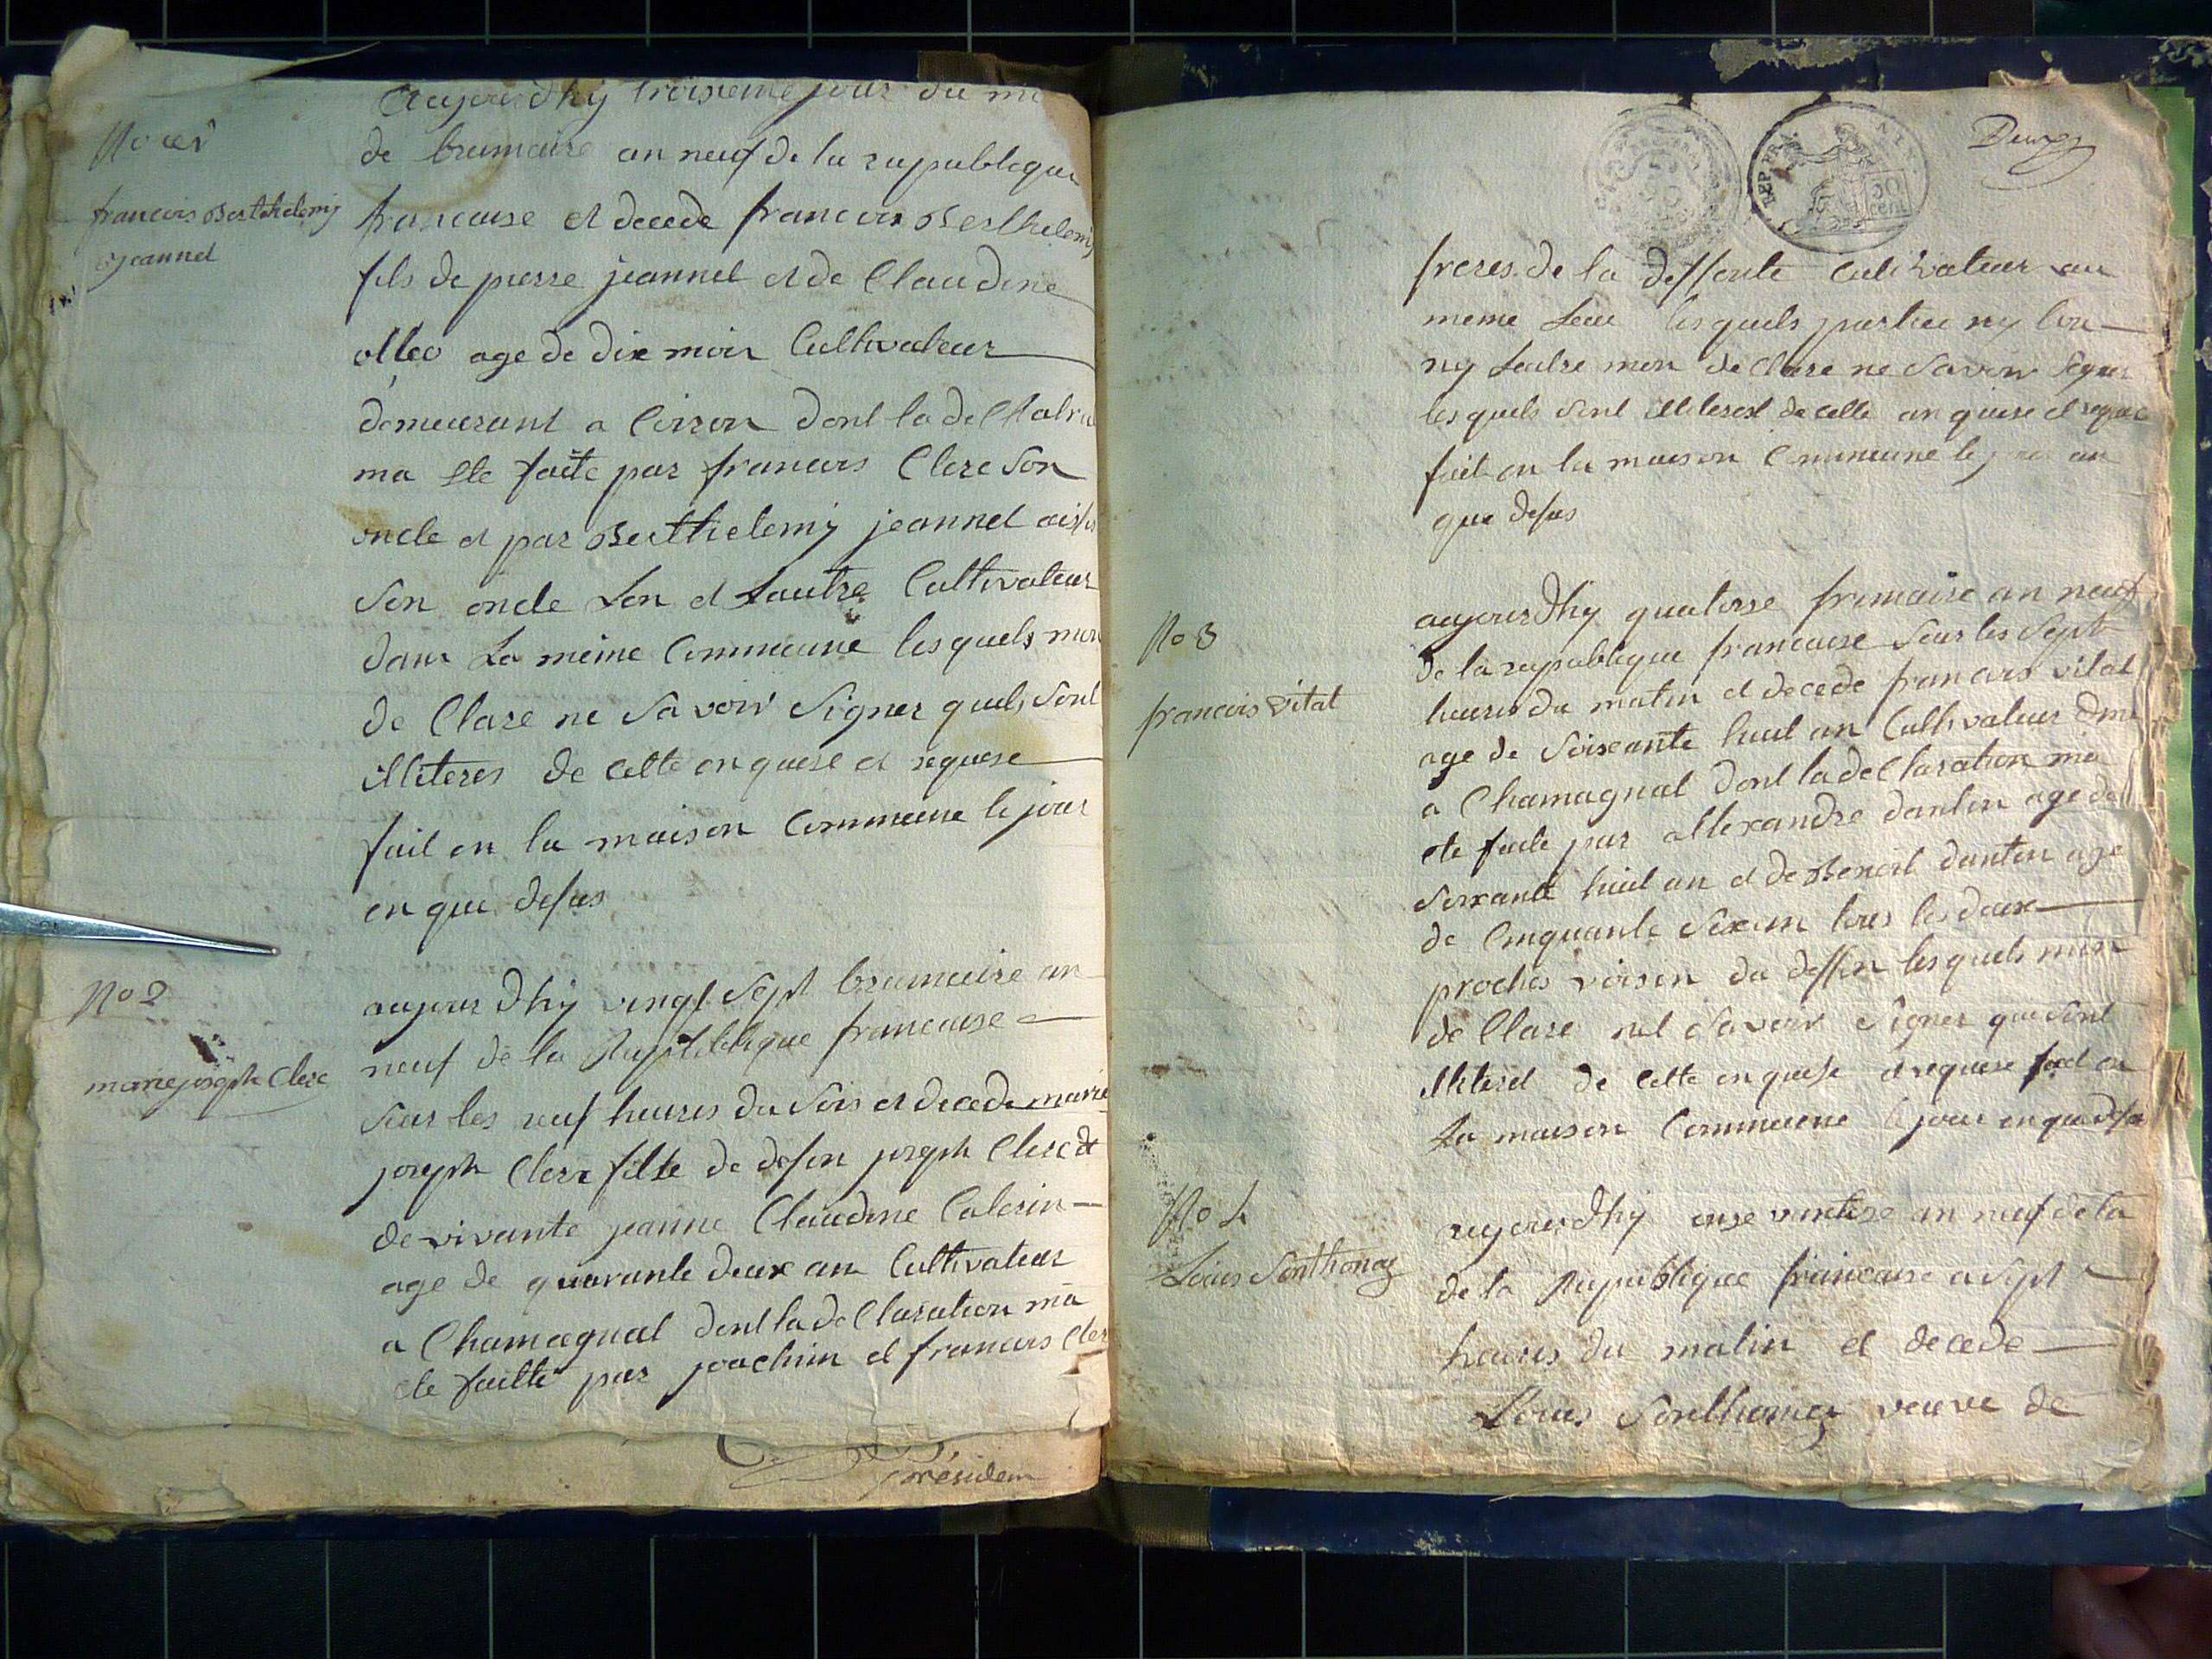 No 1er
francois Berthelemÿ
jeannel
aujourdhÿ troisieme jour du mi
de brumaire an neuf de la rapublique
francaise et decede francois Berthelemÿ
fils de pierre jeannel et de Claudine
age de dix moix Cultivateur
demeurant a Cirron dont la de Clalra
ma ete faite par francois Clerc son
oncle et par Berthelemÿ jeannel
son oncle Lon et Lautre Cultivateur
dans La méme Commeune lesquels mon
de Clare ne savoir signer quels sont
illiteres de cette enquese et requese
fait en la maison Commeune le jour
en que desus
No 2
marie joseph Clerc
aujourdhÿ vingt sept brumaire an
neuf de la Rupublique francaise
sur les neuf heures du soir et decede marie
joseph Clerc fille de defon joseph Clerc et
de vivante jeanne Claudine Calerin
age de quarante deux an Cultivateur
a Chamagnat dont la de Claration ma
ete faitte par joachim et francois Cler
presidem
REP. FRA.
30
cent
freres de la deffonte Cultivateur au
meme Leui lesquels partiee nÿ lon
nÿ Leutre mon de Clare ne savoir signer
lesquels sont illiterest de cette enquese et requese
fait en la maison Commeune le jour an
que desus
No 3
francois vital
aujourdhÿ quatorse frimaire an neuf
de la rapublique francaise sur les sept
heures du matin et decede francois vital
age de soixante huit an Cultivateur dme
a Chamagnat dont la de Claration ma
ete faite par allexandre dantin age de
soixante huit an et de Benoit dantin age
de Cinquante six an tous les deux
proches voisin du deffon lesquels mon
de Clare nel savoir signer que sont
illiterest de cette enquese et requese fait en
La maison Commeune le jour en que desu
No 4
Louis Sonthonax
aujourdhÿ onse vantose an neuf de la
de la Rupublique francaise a sept
heures du matin et decede
Louis Sonthonax veuve de